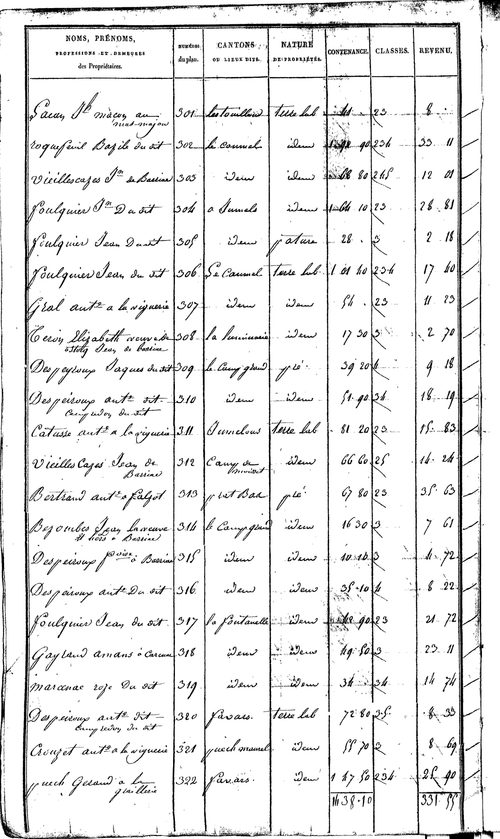 NOMS, PRÉNOMS, PROFESSIONS ET DEMEURES des Propriétaires. NUMÉROS du plan. CANTONS OU LIEUX DITS. NATURE DE PROPRIÉTÉS. CONTENANCE. CLASSES. REVENU.
maçon au 301 terre lab 23 8
mas-majou
roquefeuil Bazile du dit 302 le caumel idem 234 33 11
Vieillescazes Jn de Bassine 303 idem idem 245 12 01
foulquier Jn Du dit 304 a Jumels idem 1 64 10 23 28 81
foulquier Jean Du dit 305 idem pature 28 3 2 18
foulquier Jean du dit 306 Le Caumel terre lab 1 01 40 234 17 40
Gral ante a la viguerie 307 idem idem 54 23 11 23
Elizabeth veuve de 308 la idem 17 30 3 2 70
Jean de bassine
Despeiroux Jaques du dit 309 le Camp grand pré 39 20 4 9 18
Despeiroux ante dit 310 idem idem 51 90 34 18 19
du dit
Catusse ante a la viguerie 311 Jumelous terre lab 81 20 23 15 83
Vieilles Cazes Jean de 312 Camp de idem 66 60 25 14 24
Bassine
Bertrand ante a falgot 313 prat Bas pré 67 80 23 35 63
Bezombes Jean la veuve 314 le Camp grand idem 16 30 3 7 61
hers a Bassine
Despeiroux a Bassine 315 idem idem 10 10 3 4 72
Despeiroux ante Du dit 316 idem idem 35 10 4 8 22
foulquier Jean du dit 317 la fontanelle idem 42 90 23 21 72
Gayraud amans a 318 idem idem 49 50 3 23 11
marcenac roze Du dit 319 idem idem 34 34 14 74
Despeiroux ante dit 320 favars terre lab 72 80 35 8 33
du dit
Crouzet ante a la viguerie 321 puech idem 55 70 2 8 69
puech Geraud a la 322 favars idem 1 47 50 234 25 90
14 38 10 331 55